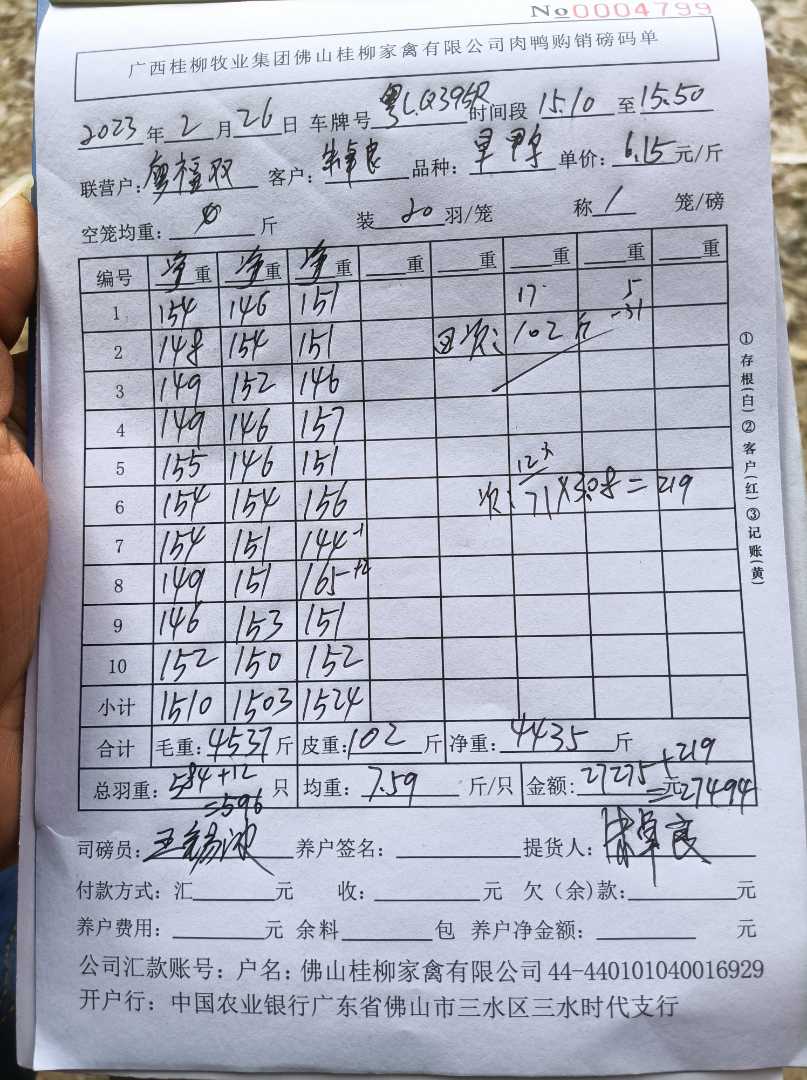 No0004799
广西桂柳牧业集团佛山桂柳家禽有限公司肉鸭购销磅码单
2023年2月26日 车牌号粤L.Q395R时间段15.10至15.50
联营户:廖福双 客户: 卓良 品种: 单价:6.15元/斤
空笼均重: 斤 装20羽/笼 称1笼/磅
编号 净重 净重 净重 重 重 重 重 重
1 154 146 151 17 5
2 148 154 151 回次: 102斤 -31
3 149 152 146
4 149 146 157
5 155 146 151 12只
6 154 154 156 次: 71×3.08=219
7 154 151 144-1
8 149 151 165+2
9 146 153 151
10 152 150 152
小计 1510 1503 1524
合计 毛重:4537斤 皮重:102斤 净重:4435斤
总羽重:584+12=596只 均重:7.59斤/只 金额:27275元+219=27494
司磅员:王锡波 养户签名: 提货人: 卓良
付款方式:汇 元 收: 元 欠(余)款: 元
养户费用: 元 余料 包 养户净金额: 元
公司汇款账号:户名:佛山桂柳家禽有限公司44-440101040016929
开户行:中国农业银行广东省佛山市三水区三水时代支行
①存根(白)②客户(红)③记账(黄)